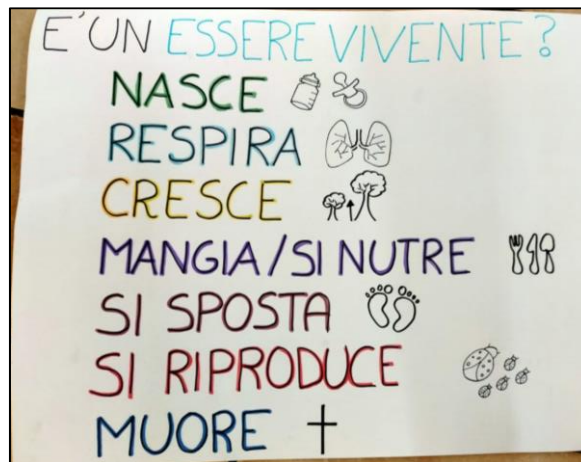 E'UN ESSERE VIVENTE?
NASCE
RESPIRA
CRESCE
MANGIA/SI NUTRE
SI SPOSTA
SI RIPRODUCE
MUORE